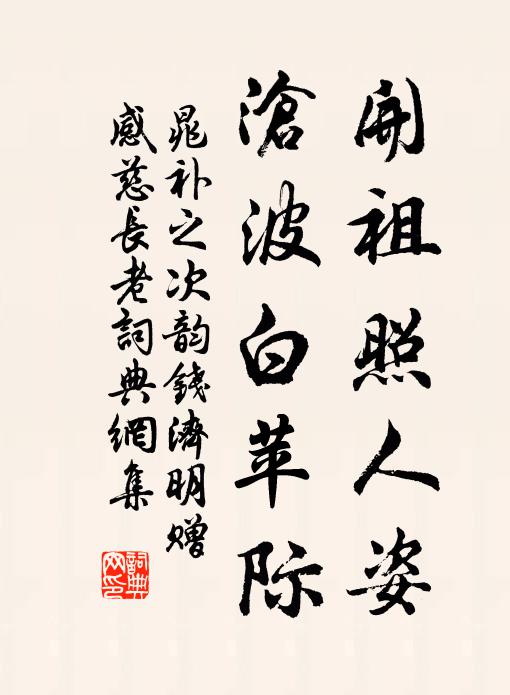 開祖照人姿
滄波白苹际
晁补之次韵錢濟明赠
感慈長老詞典網集
詞典
网印